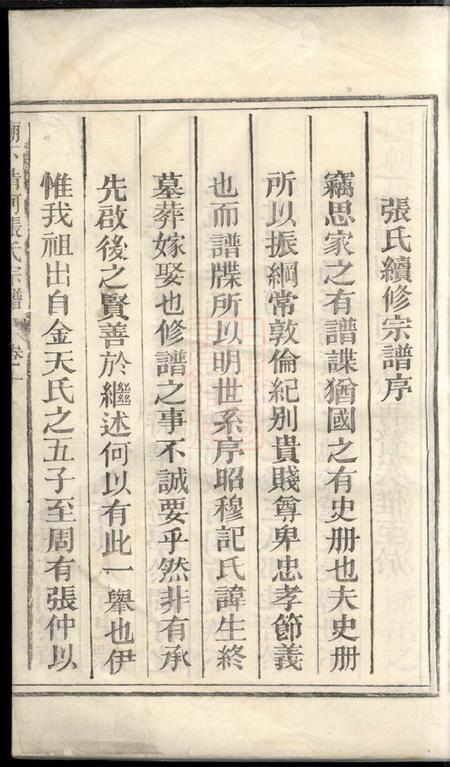 張氏續修宗譜序
竊思家之有譜諜猶國之有史册也夫史册
所以振綱常敦倫紀別貴賤尊卑忠孝節義
也而譜牒所以明世系序昭穆記氏諱生終
墓葬嫁娶也修譜之事不誠要乎然非有承
先啟後之賢善於繼述何以有此一舉也伊
惟我祖出自金天氏之五子至周有張仲以
清河張氏宗譜 卷一